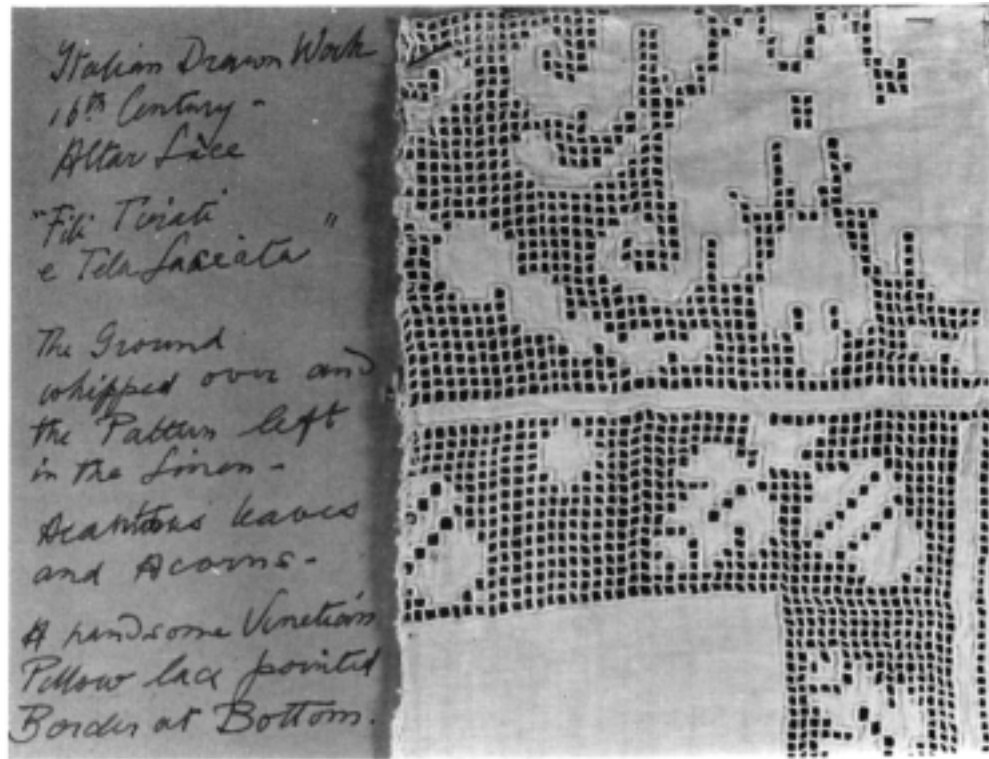 Italian Drawn Work
16th Century -
Altar Lace
"Fili Tirati
e Tela Lasciata"
The Ground
whipped over and
the Pattern left
in the Linen -
Acanthus leaves
and Acorns -
A handsome Venetian
Pillow lace pointed
Border at Bottom.